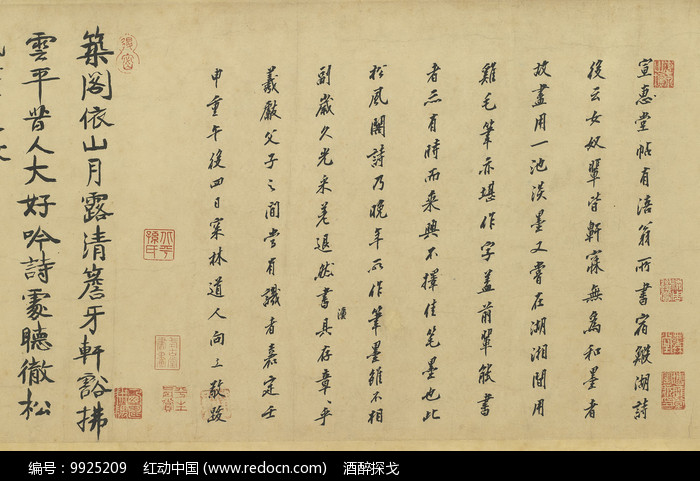 宣惠堂帖有涪翁所書宿湖詩
後云女奴輩皆鼾寐無為和墨者
故盡用一池淡墨又嘗在湖湘間用
雞毛筆亦堪作字蓋前輩能書
者亦有時而乘興不擇佳筆墨也此
松風閣詩乃晚年所作筆墨雖不相
副歲久光采差退然書具存章章乎
羲獻父子之間當有識者嘉定壬
申重午後四日林道人向敬跋
築閣依山月露清簷牙軒豁拂
雲平昔人大好吟詩處聽徹松
编号：9925209 红动中国 (www.redocn.com) 酒醉探戈